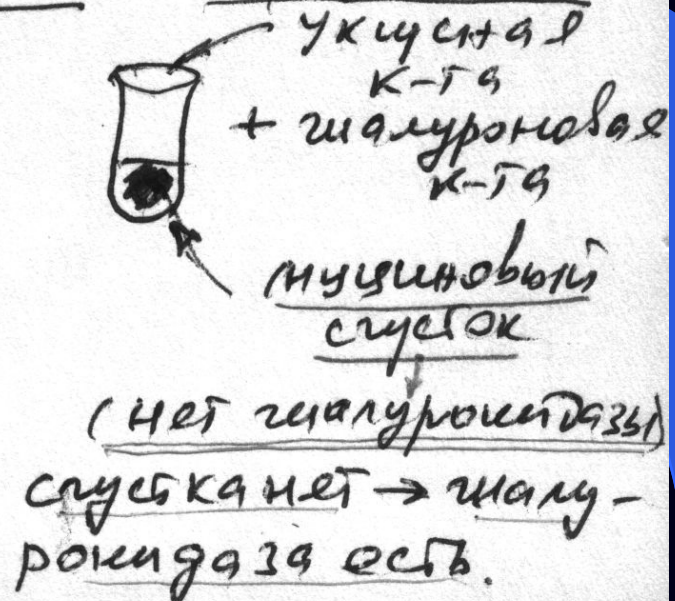 Уксусная
к-та
+ гиалуроновая
к-та
муциновый
сгусток
(нет гиалуронидазы)
сгустка нет → гиалу-
ронидаза есть.